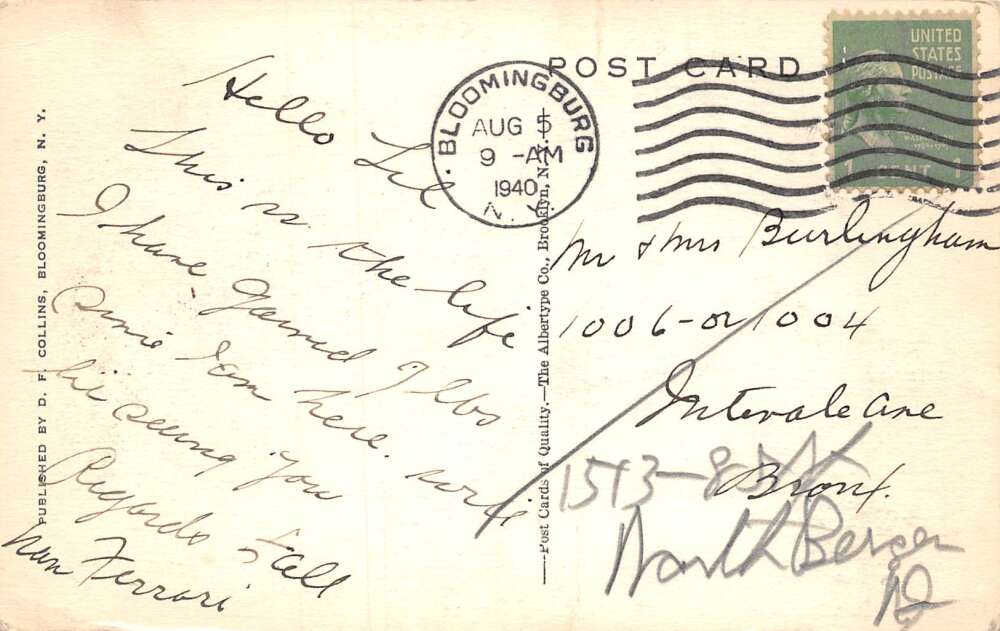 POST CARD
UNITED
STATES
POSTAGE
1 CENT 1
BLOOMINGBURG
AUG 5
9 -AM
1940
N. Y.
Hello Lil
This is the life
I have gained 7 lbs
since I am here. will
be seeing you
Regards to all
Nan Ferrari
Mr & Mrs Burlingham
1006-or 1004
Intervale Ave
Bronx.
1543-85 St
North Bergen
PUBLISHED BY D. F. COLLINS, BLOOMINGBURG, N. Y.
Post Cards of Quality.—The Albertype Co., Brooklyn, N. Y.